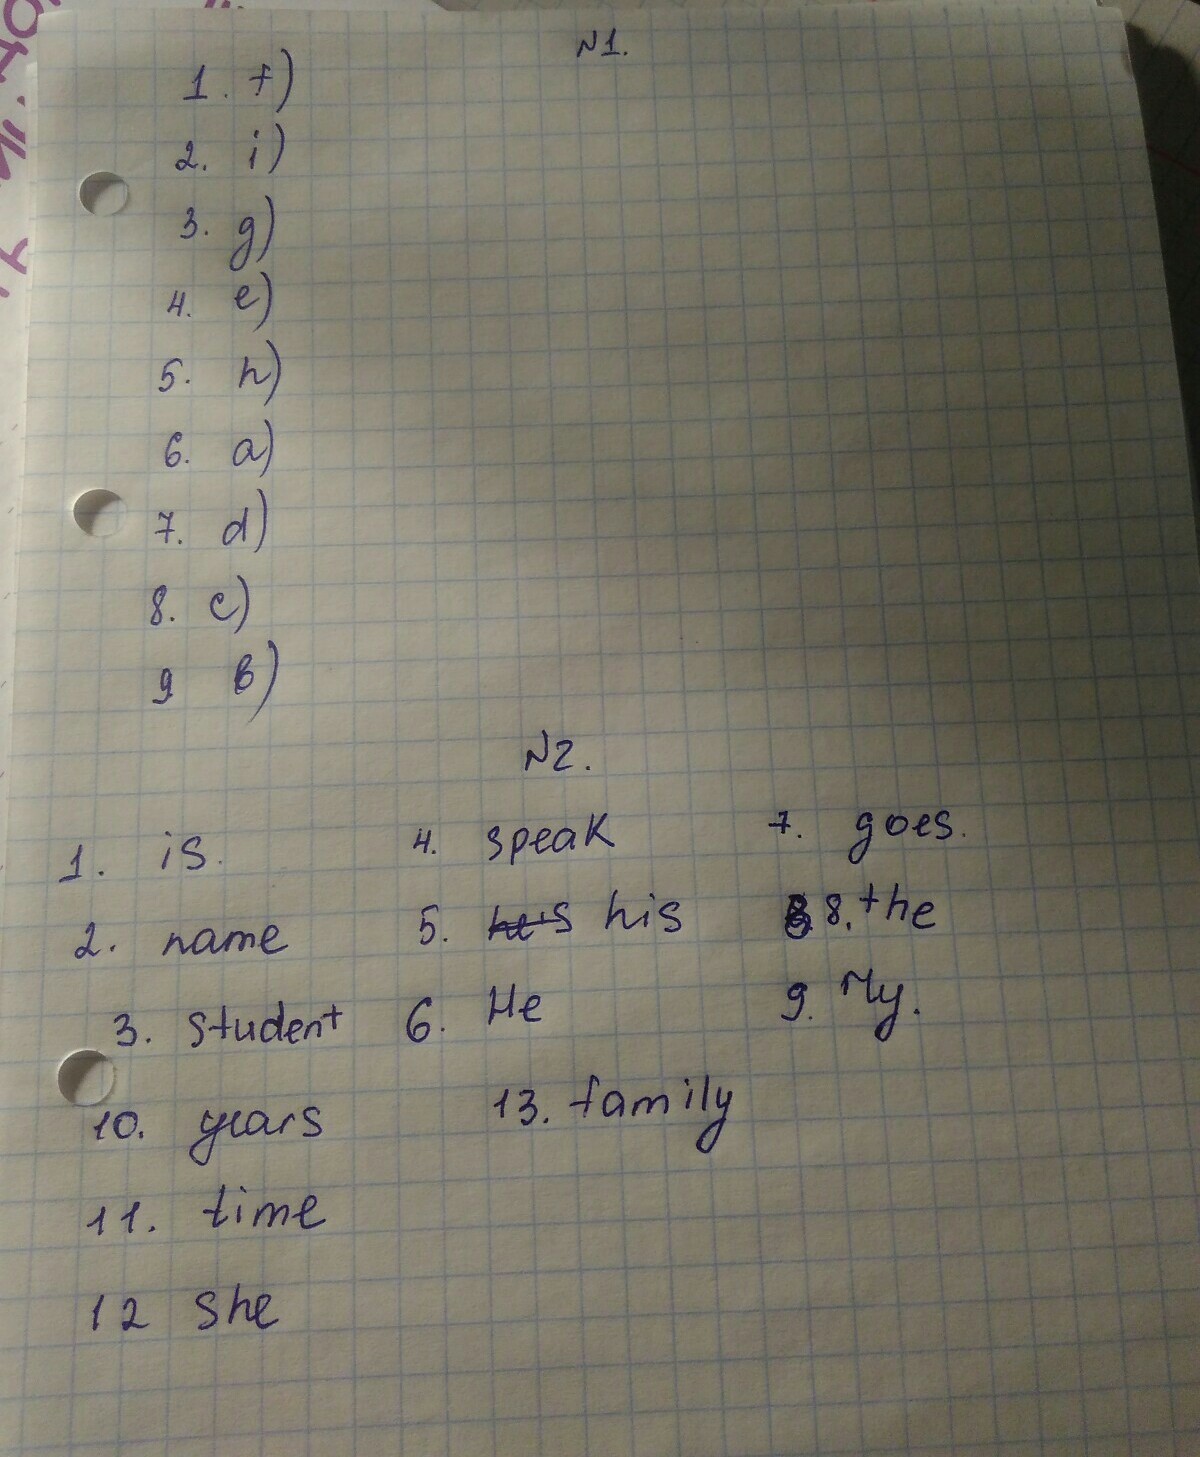 N1.
1. f)
2. i)
3. g)
4. e)
5. h)
6. a)
7. d)
8. c)
9 b)
N2.
1. is. 4. speak 7. goes.
2. name 5. his 8. the
3. student 6. He 9. My.
10. years 13. family
11. time
12 she